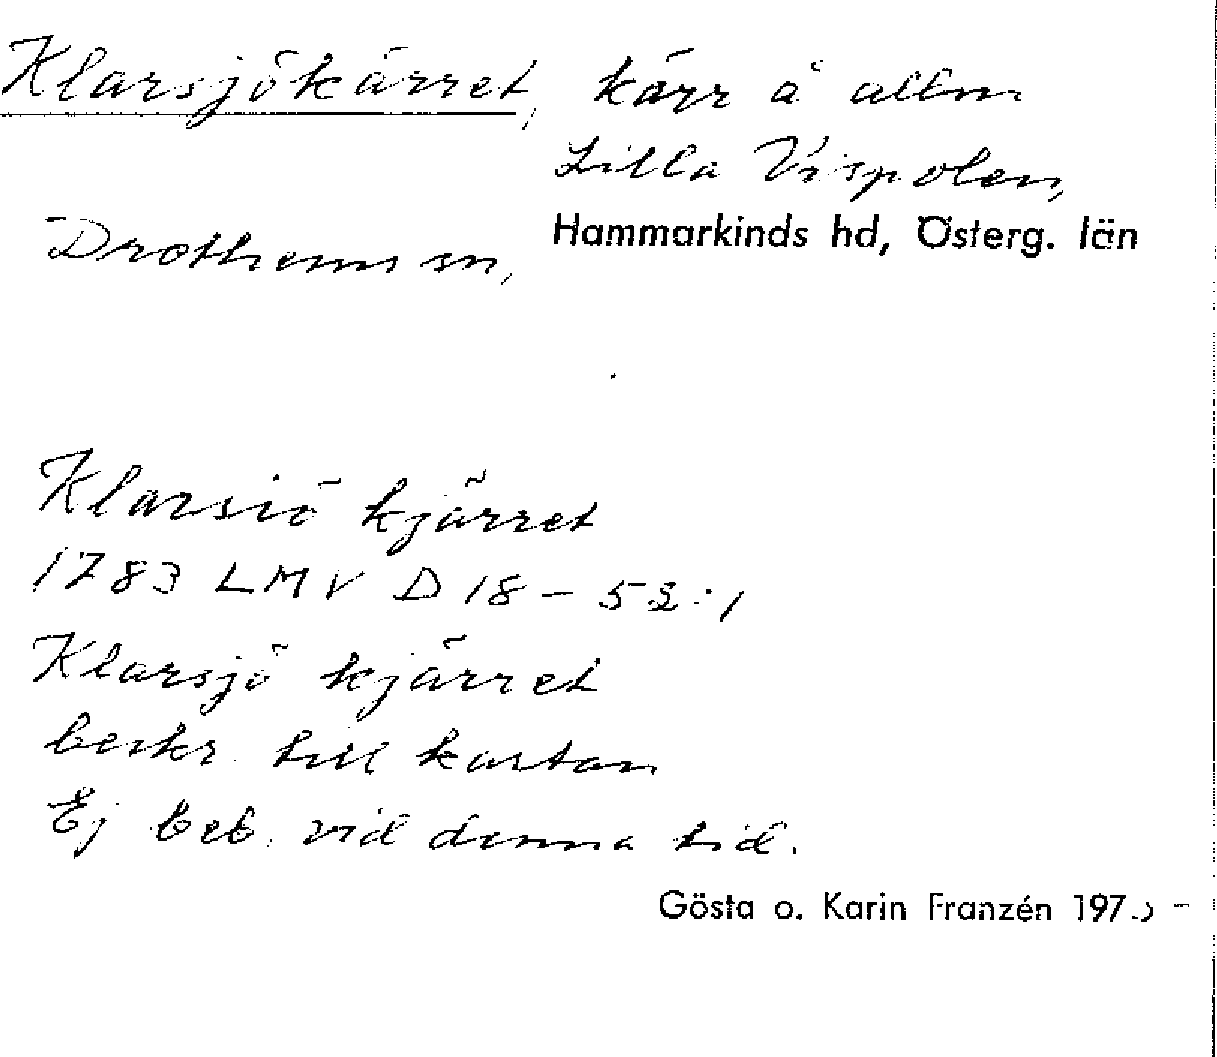 Klarsjökärret, kärr å allm.
Lilla Vispolen,
Drothems sn, Hammarkinds hd, Österg. län
Klarsiö kjärret
1783 LMV D 18 - 52:1
Klarsjö kjärret
beskr. till kartan
Ej beb. vid denna tid.
Gösta o. Karin Franzén 197